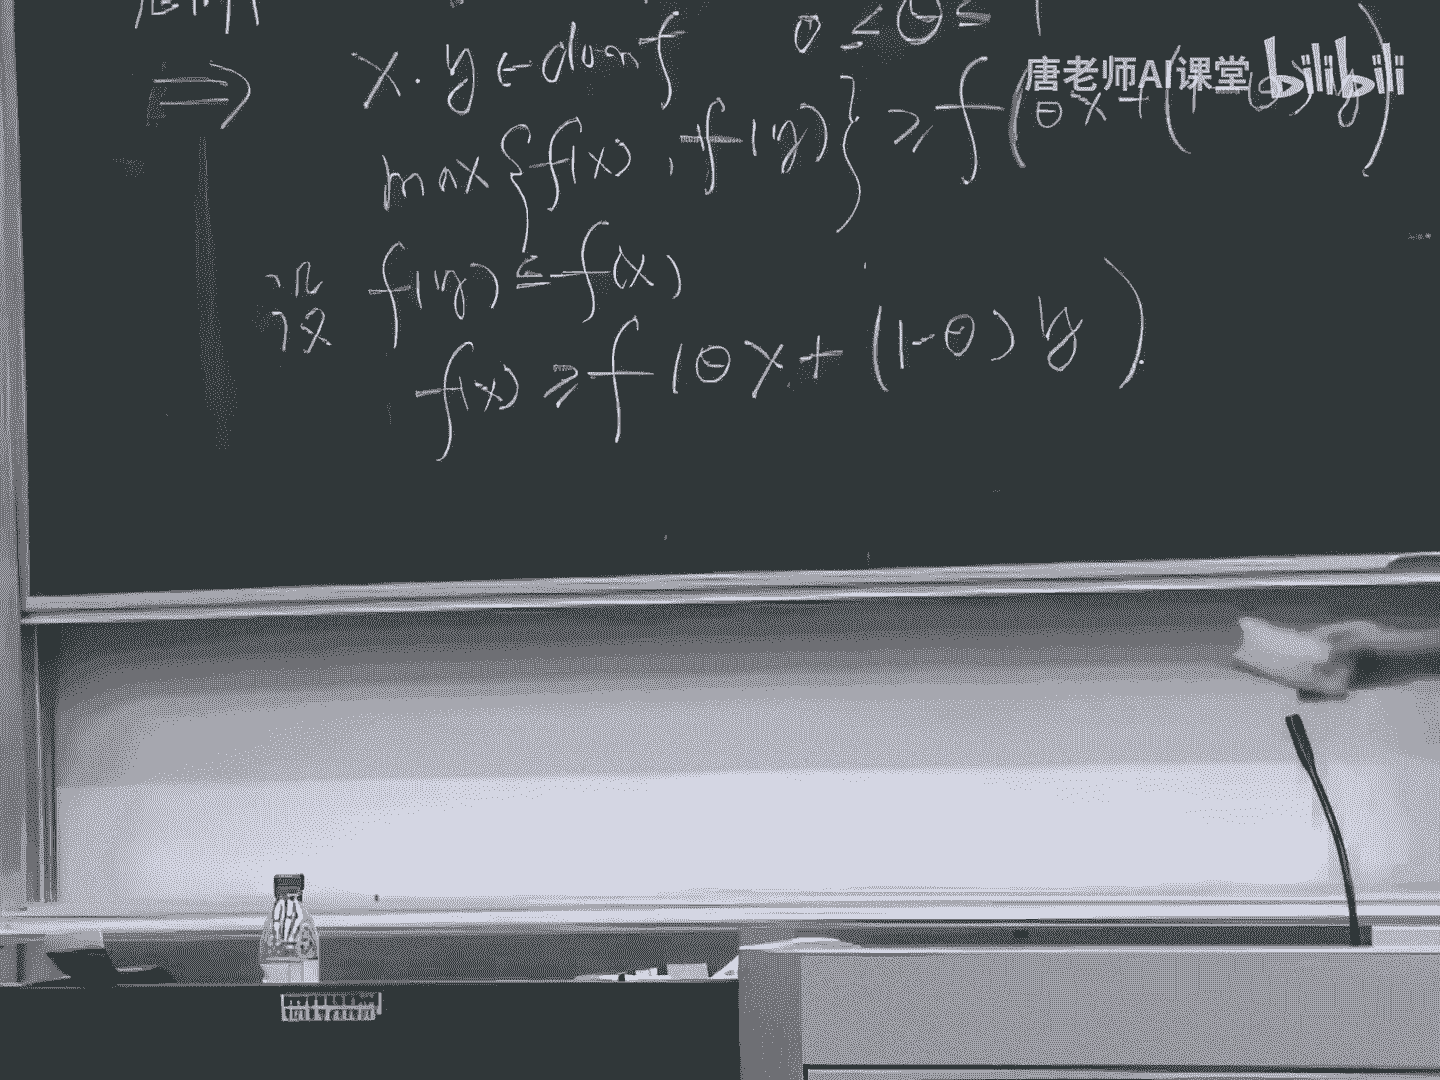 0 ≤ θ ≤ 1
⇒ x. y ∈ dom f
唐老师AI课堂 bilibili
max{f(x), f(y)} ≥ f(θx + (1-θ)y)
设 f(y) ≤ f(x)
f(x) ≥ f(θx + (1-θ)y)